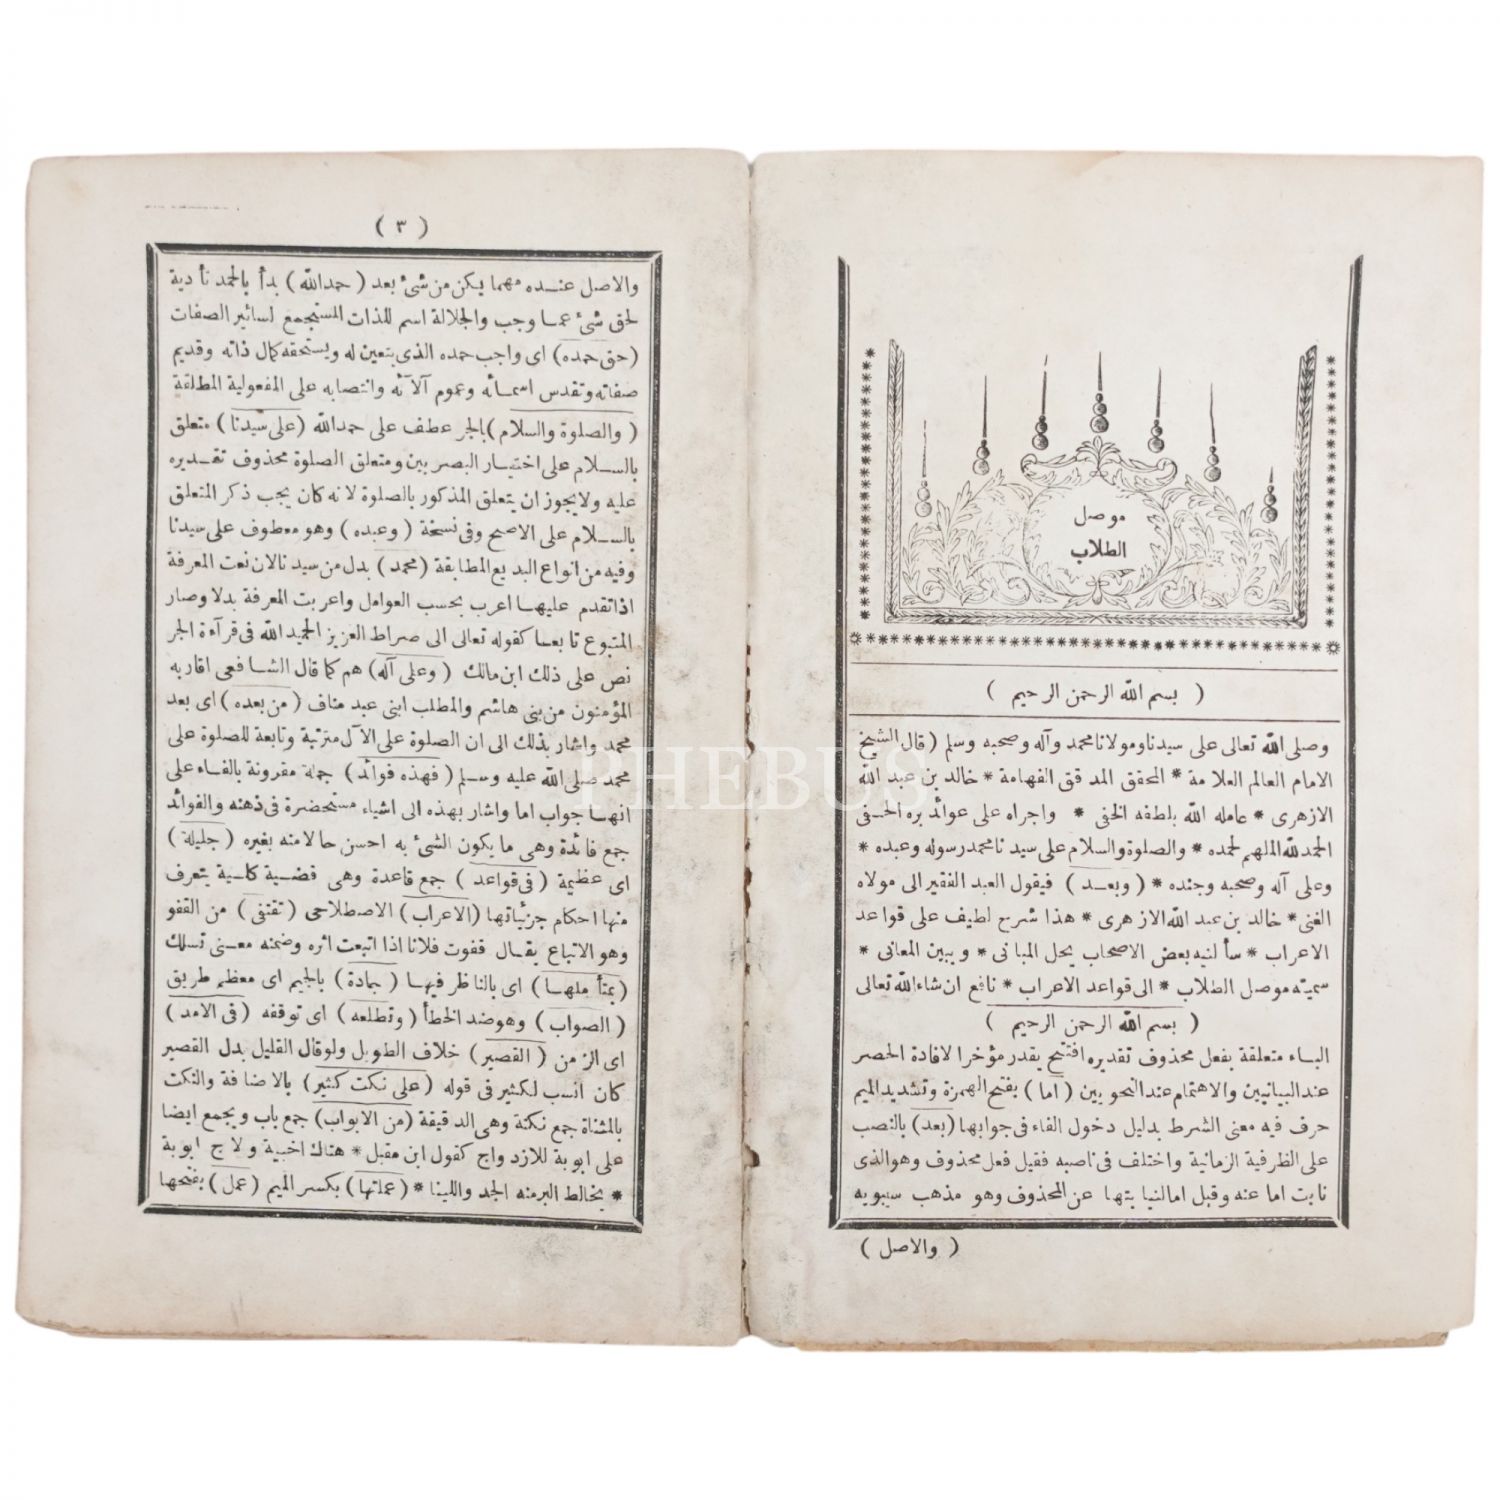 موصل
الطلاب
( بسم الله الرحمن الرحيم )
وصلى الله تعالى على سيدنا ومولانا محمد وآله وصحبه وسلم ( قال الشيخ
الامام العالم العلامة * المحقق المدقق الفهامة * خالد بن عبد الله
الازهرى * عامله الله بلطفه الخفى * واجراه على عوائد بره الحفى
الحمد لله الملهم لحمده * والصلوة والسلام على سيدنا محمد رسوله وعبده *
وعلى آله وصحبه وجنده * ( وبعد ) فيقول العبد الفقير الى مولاه
الغنى * خالد بن عبد الله الازهرى * هذا شرح لطيف على قواعد
الاعراب * سألنيه بعض الاصحاب يحل المبانى * ويبين المعانى *
سميته موصل الطلاب * الى قواعد الاعراب * نافع ان شاء الله تعالى
( بسم الله الرحمن الرحيم )
الباء متعلقة بفعل محذوف تقديره افتتح يقدر مؤخرا لافادة الحصر
عند البيانيين والاهتمام عند النحويين ( اما ) بفتح الهمزة وتشديد الميم
حرف فيه معنى الشرط بدليل دخول الفاء فى جوابها ( بعد ) بالنصب
على الظرفية الزمانية واختلف فى ناصبه فقيل فعل محذوف وهو الذى
نابت اما عنه وقيل اما لنيابتها عن المحذوف وهو مذهب سيبويه
( والاصل )
( ٣ )
والاصل عنده مهما يكن من شئ بعد ( حمد الله ) بدأ بالحمد تأدية
لحق شئ عما وجب والجلالة اسم للذات المستجمع لسائر الصفات
( حق حمده ) اى واجب حمده الذى يتعين له ويستحقه كمال ذاته وقديم
صفاته وتقدس اسمائه وعموم آلائه وانتصابه على المفعولية المطلقة
( والصلوة والسلام ) بالجر عطف على حمد الله ( على سيدنا ) متعلق
بالسلام على اختيار البصريين ومتعلق الصلوة محذوف تقديره
عليه ولا يجوز ان يتعلق المذكور بالصلوة لانه كان يجب ذكر المتعلق
بالسلام على الاصح وفى نسخة ( وعبده ) وهو معطوف على سيدنا
وفيه من انواع البديع المطابقة ( محمد ) بدل من سيدنا لان نعت المعرفة
اذا تقدم عليها اعرب بحسب العوامل واعربت المعرفة بدلا وصار
المتبوع تابعا كقوله تعالى الى صراط العزيز الحميد الله فى قرآءة الجر
نص على ذلك ابن مالك ( وعلى آله ) هم كما قال الشافعى اقاربه
المؤمنون من بنى هاشم والمطلب ابنى عبد مناف ( من بعده ) اى بعد
محمد واشار بذلك الى ان الصلوة على الآل مترتبة وتابعة للصلوة على
محمد صلى الله عليه وسلم ( فهذه فوائد ) جملة مقرونة بالفاء على
انها جواب اما واشار بهذه الى اشياء مستحضرة فى ذهنه والفوائد
جمع فائدة وهى ما يكون الشئ به احسن حالا منه بغيره ( جليلة )
اى عظيمة ( فى قواعد ) جمع قاعدة وهى قضية كلية يتعرف
منها احكام جزئياتها ( الاعراب ) الاصطلاحى ( تقتفى ) من القفو
وهو الاتباع يقال قفوت فلانا اذا اتبعت اثره وضمنه معنى تسلك
( بمتأملها ) اى بالناظر فيها ( جادة ) بالجيم اى معظم طريق
( الصواب ) وهو ضد الخطأ ( وتطلعه ) اى توقفه ( فى الامد )
اى الزمن ( القصير ) خلاف الطويل ولو قال القليل بدل القصير
كان انسب لكثير فى قوله ( على نكت كثير ) بالاضافة والنكت
بالمثناة جمع نكتة وهى الدقيقة ( من الابواب ) جمع باب ويجمع ايضا
على ابوبة للازدواج كقول ابن مقبل * هتاك اخبية ولاج ابوبة
* يخالط البر منه الجد واللينا * ( عملتها ) بكسر الميم ( عمل ) بفتحها
PHEBUS